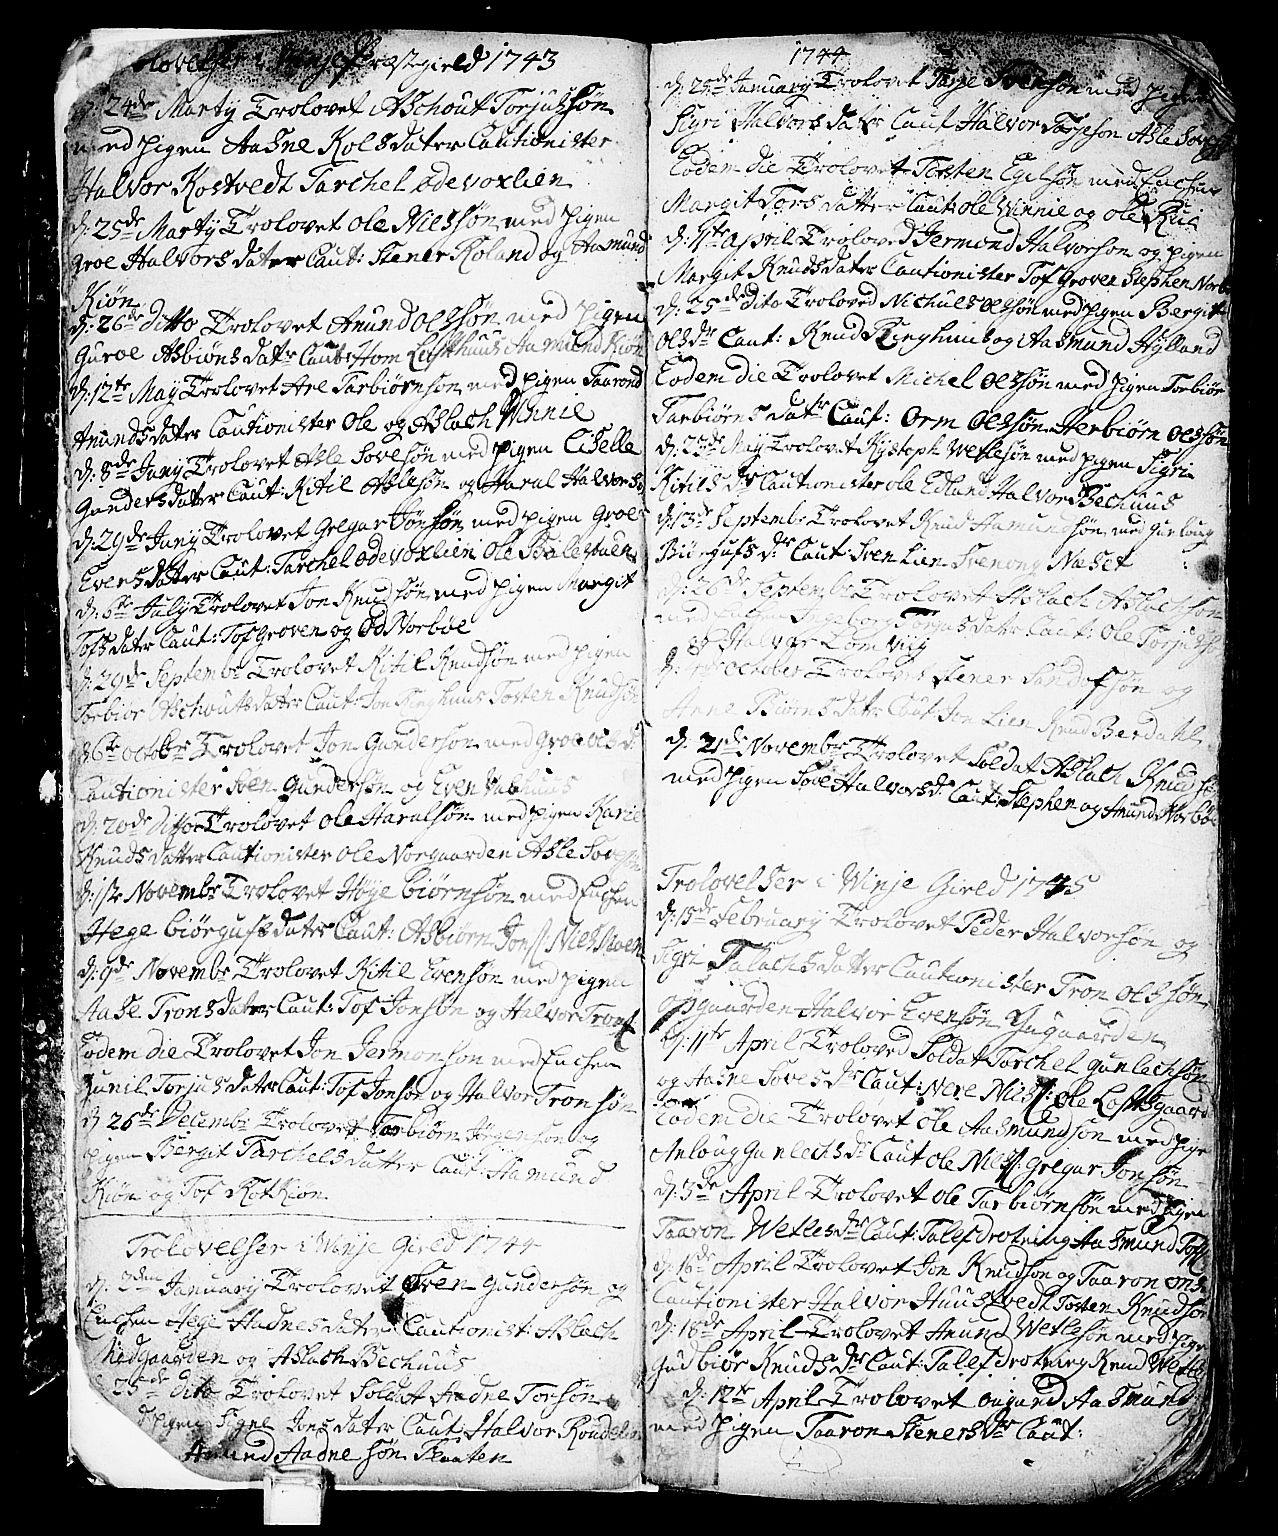 Trolovelser i Winje Præstegield 1743
d: 24de Marty Trolovet Aschout Torjussøn
med pigen Aasne Kolsdatter Cautionister
Halvor Kostvedt Tarchel Odevoxlien
d: 25de Marty Trolovet Ole Nilssøn med pigen
Groe Halvorsdatter Caut: Stener Roland og Aamund
Kiøn
d: 26de ditto Trolovet Anund Olssøn med pigen
Guroe Asbiønsdater Caut: Hom Lofthuus Aamund Kiøn
d: 12te May Trolovet Are Tarbiørnsøn med pigen Taarond
Anundsdater Cautionister Ole og Aslach Winnie
d: 8de Juny Trolovet Asle Sovesøn med pigen Cissele
Gundersdatter Caut: Kitil Aslesøn og Haral Halvors
d: 29de Juny Trolovet Gregar Jonsøn med pigen Groe
Eversdatter Caut: Tarchel Odevoxlien Ole Bale
d: 6te July Trolovet Jon Knudssøn med pigen Margit
Tofsdater Caut: Tof Groven og Od Norbøe
d: 29de Septembr Trolovet Kitil Knudsøn med pigen
Torbior Aschoutsdater Caut: Jon Ringhuus Tosten Knudsøn
d: 6te Octobr Trolovet Jon Gundersøn med Groe Ols dr
Cautionister Sven Gundersøn og Even
d: 20de Ditto Trolovet Ole Haralsøn med pigen Karie
Knudsdatter Cautionister Ole Norgaarden Asle Sovesøn
d: 1ste Novembr Trolovet Høye biørnsøn med Enchen
Hege biørgufsdater Caut: Asbiørn Jons Nils Moen
d: 9de Novembr Trolovet Kitil Evensøn med pigen
Aase Tronsdater Caut: Tof Jonsøn og Halvor Tront
Eodem die Trolovet Jon Jermonsøn med Enchen
Gunil Torjusdater Caut: Tof Jonsøn og Halvor Tronsøn
d: 26de Decembr Trolovet Torbiørn Jørgensøn og
pigen Bergit Tarchelsdatter Caut: Aamund
Kiøn og Tof Rotkiøn
Trolovelser i Winje Gield 1744
d: 2den January Trolovet Sven Gundersøn og
Enchen Hege Aadnesdater Cautionist: Aslach
Midgaarden og Aslach Bechuus
25de dito Trolovet Soldat Aadne Torsøn
pigen Signe Jonsdater Caut: Halvor
Amund Aadnesøn Flaaten
1744
d: 25de January Trolovet Tarje Svensøn med pigen
Sigri Halvorsdatr Caut Halvor Tarjeson Asle Soves
Eodem die Trolovet Torsten Egilsøn med Enchen
Margit Torsdatter Caut: Ole Winnie og Ole Rue
d: 4te April Trolovet Jermond Halvorson og pigen
Margit Knudsdater Cautionister Tof Groven Stephen Norbø
d: 25de dito Trolovet Nichuls Olssøn med pigen Bergit
Olsdr Caut: Knud Ringhuus og Aasmund Hylland
Eodem die Trolovet Michel Olssøn med pigen Torbior
Tarbiørnsdatr Caut: Orm Olssøn Herbiørn Olssøn
d: 23de May Trolovet Kystoph Wetlesøn med pigen Sigri
Kitilsdr Cautionister Ole Edland Halvor Bechuus
d: 13de Septembr Trolovet Knud Aamundsøn med Gunloug
Biørgufsdr Caut: Sven Lien Svenong Næset
d: 26de Septembr Trolovet Aslach Aslachsøn
med Ingeborg Torjusdater Caut: Ole Torjus
og Halvor Lomvig
d: October Trolovet Stener Sandofsøn og
Anne Biørnsdater Caut: Jon Lien Knud Berdahl
d: 21de Novembr Trolovet Soldat Aslach Knudsøn
med pigen Sove Halvorsdr Caut: Stephen og Amund Norbø
Trolovelser i Winje Gield 1745
d: 15de February Trolovet Peder Halvorsøn og
Sigri Talachsdatter Cautionister Tron Olssøn
Opgaarden Halvor Evensøn Yygaarden
d: 11te April Trolovet Soldat Tarchel Gunlachsøn
og Aasne Sovesdr Caut: Nere Nils: Ole Loftsgaard
Eodem die Trolovet Ole Aasmundsøn med pige
Anloug Gunlechsdr Caut Ole Nils: Gregar Jonsøn
d: 3de April Trolovet Ole Tarbiørnsøn med pigen
Taaron Wetlesdr Caut: Talef Drotning Aasmund Tof
d: 16de April Trolovet Jon Knudsøn og Taaron
Cautionister Halvor Huustvedt Tosten Knudsøn
d: 18de April Trolovet Anund Wetlesøn med pige
Gudbiør Knudsdr Caut: Talef Drotning Knud Wetle
d: 12te April Trolovet Øugund Aasmund
med pigen Taaron Stenersdr Caut: